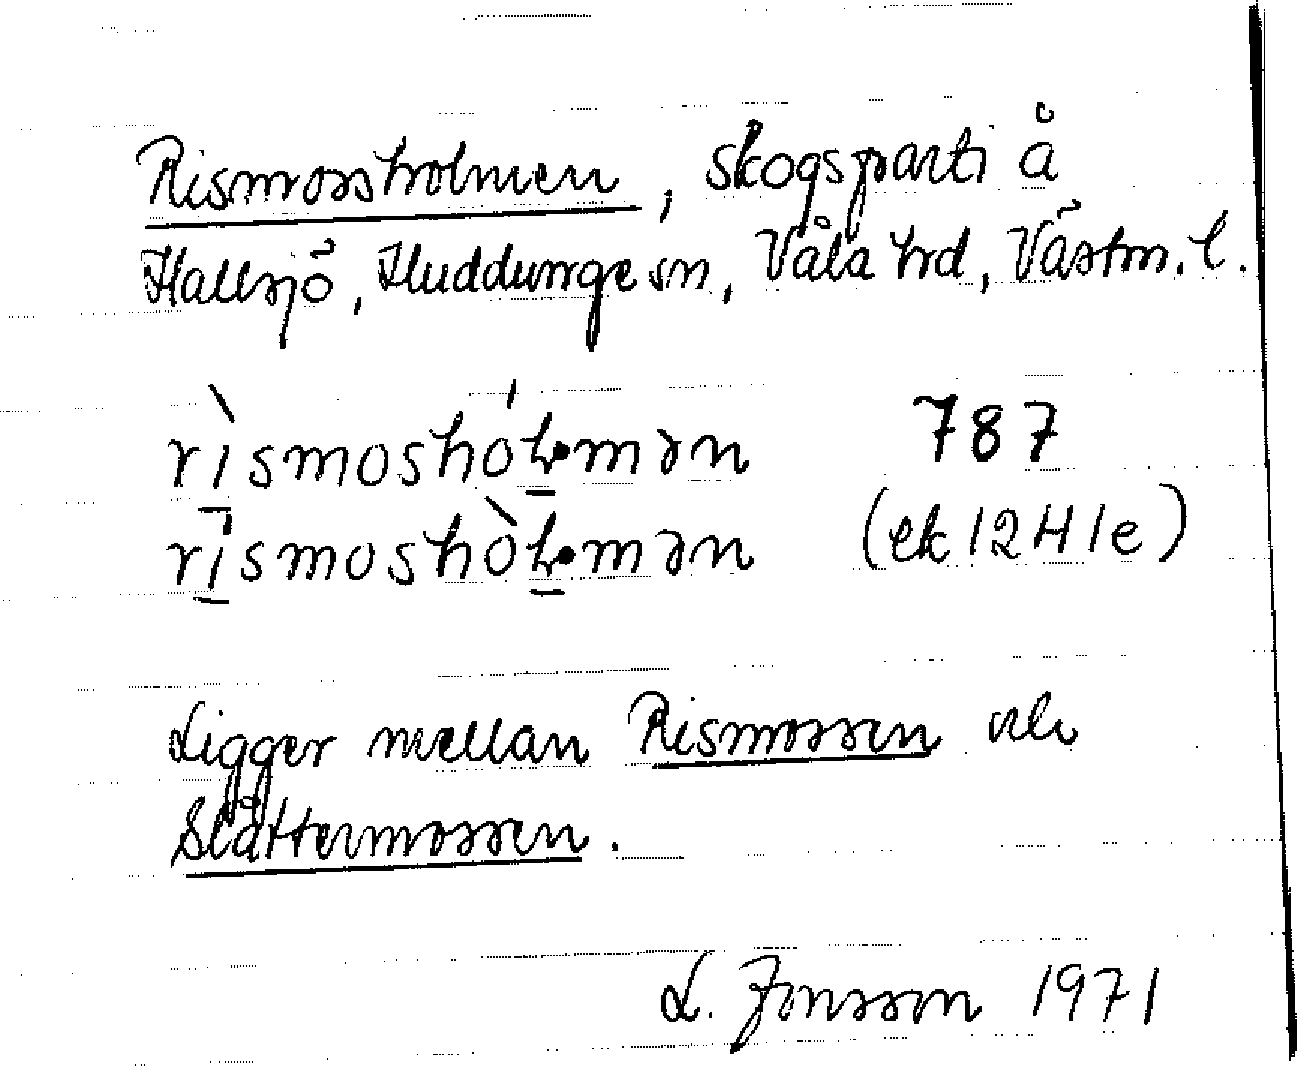 Rismossholmen, skogsparti å
Hallsjö, Huddunge sn, Våla hrd, Västm. l.
rìsmoshólmən 787
rísmoshòlmən (ek 12H1e)
Ligger mellan Rismossen och
Slåttermossen.
L. Jonsson 1971